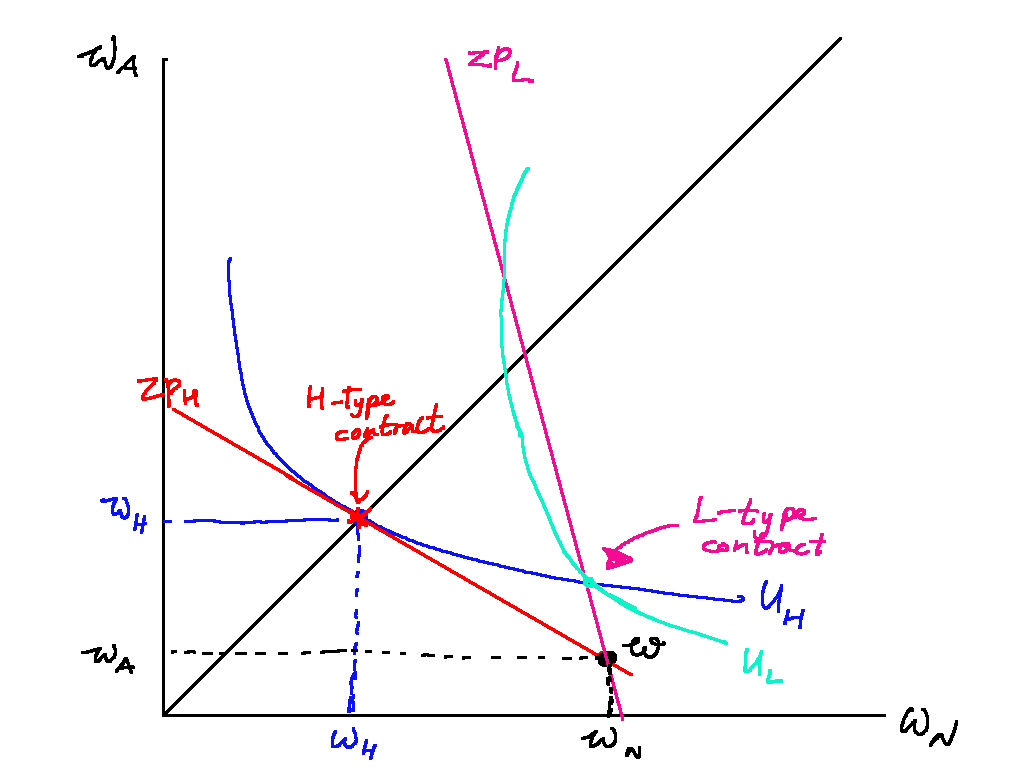 W_A
ZP_L
ZP_H
H-type
contract
W_H
L-type
contract
U_H
W_A
W
U_L
W_H
W_N
W_N